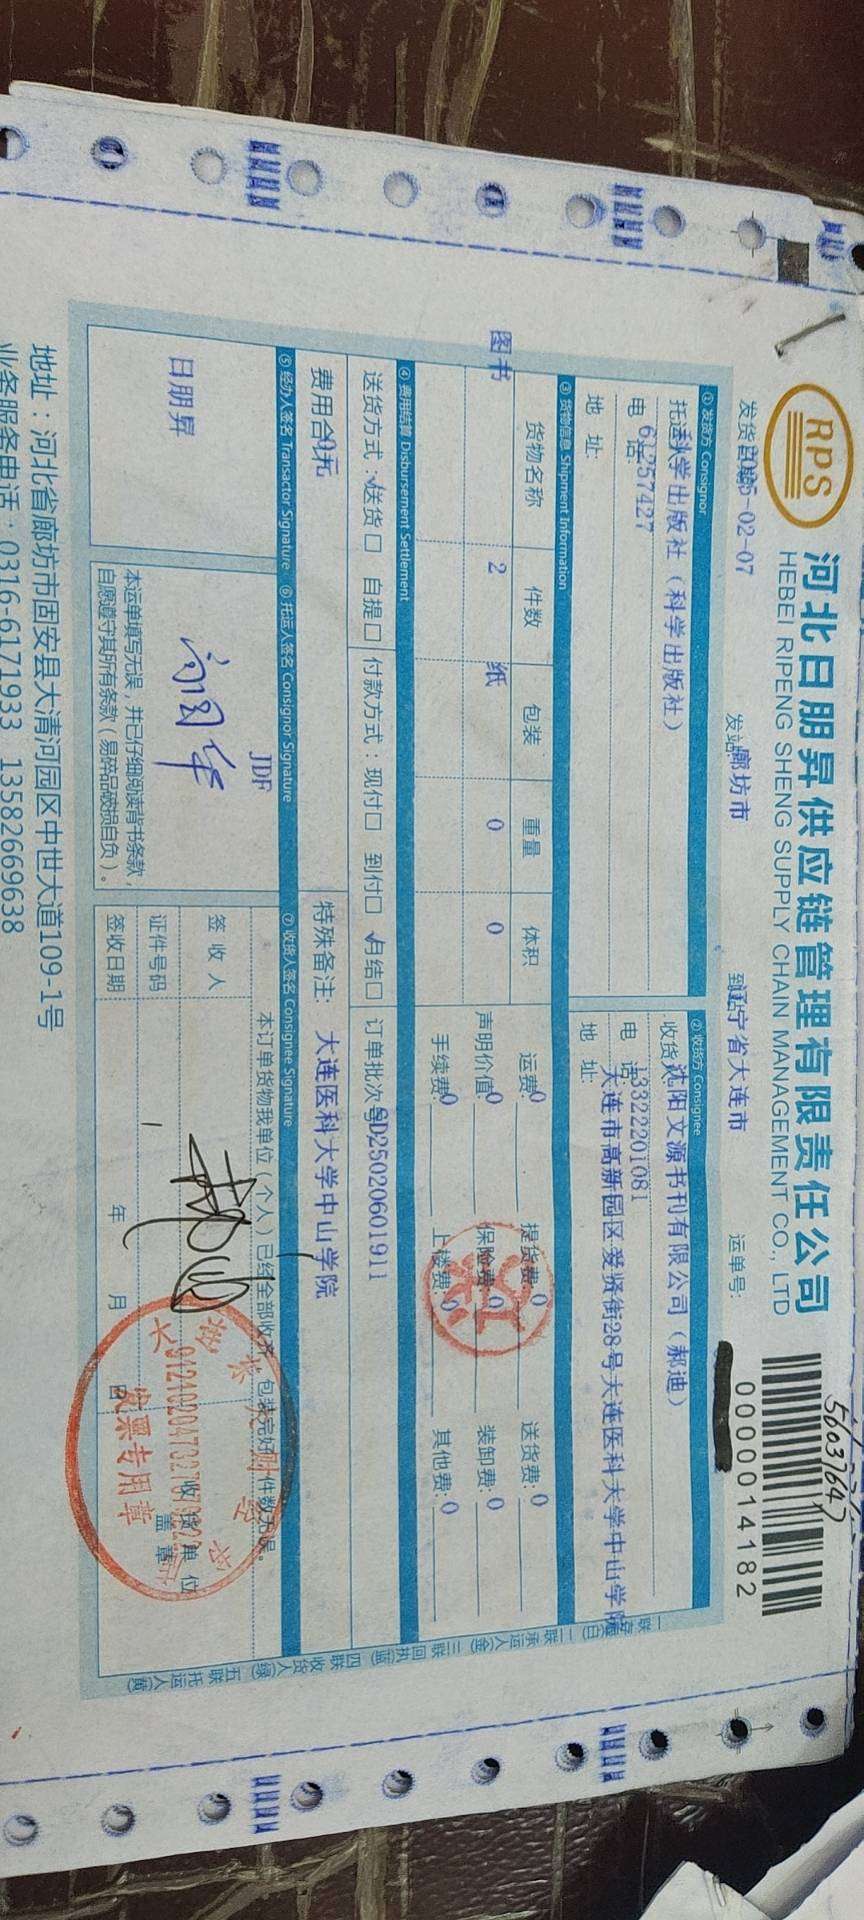 RPS
河北日朋昇供应链管理有限责任公司
HEBEI RIPENG SHENG SUPPLY CHAIN MANAGEMENT CO., LTD
56037647
0000014182
发货日期 2025-02-07 发站 廊坊市 到站 辽宁省大连市 运单号:
① 发货方 Consignor ② 收货方 Consignee
托运 科学出版社（科学出版社） 收货 沈阳文源书刊有限公司（郝迪）
电话: 61257427 电话: 13322201081
地址: 地址: 大连市高新园区爱贤街28号大连医科大学中山学院
③ 货物信息 Shipment Information
货物名称 件数 包装 重量 体积 运费: 0 提货费: 0 送货费: 0
图书 2 纸 0 0 声明价值: 0 保险费: 0 装卸费: 0
手续费: 0 上楼费: 0 其他费: 0
④ 费用结算 Disbursement Settlement
送货方式：√送货□ 自提□ 付款方式：现付□ 到付□ √月结□ 订单批次号 SD25020601911
费用合 0元 特殊备注: 大连医科大学中山学院
⑤ 经办人签名 Transactor Signature ⑥ 托运人签名 Consignor Signature ⑦ 收货人签名 Consignee Signature
日朋昇
JDF
本运单填写无误，并已仔细阅读背书条款，
自愿遵守其所有条款（易碎品破损自负）。
本订单货物我单位（个人）已经全部收齐，包装完好，件数无误。
签收人
证件号码
签收日期 年 月 日
收货单位
盖章
发票专用章
一联存根(白) 二联承运人(金) 三联回执(蓝) 四联收货人(绿) 五联托运人(黄)
地址：河北省廊坊市固安县大清河园区中世大道109-1号
业务服务电话：0316-6171933 13582669638